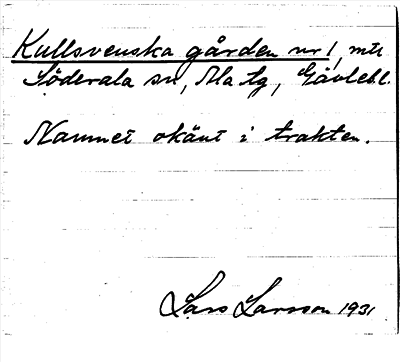 Kullsvenska gården nr 1, mtl
Söderala sn, Ala tg, Gävleb.l.
Namnet okänt i trakten.
Lars Larsson 1931